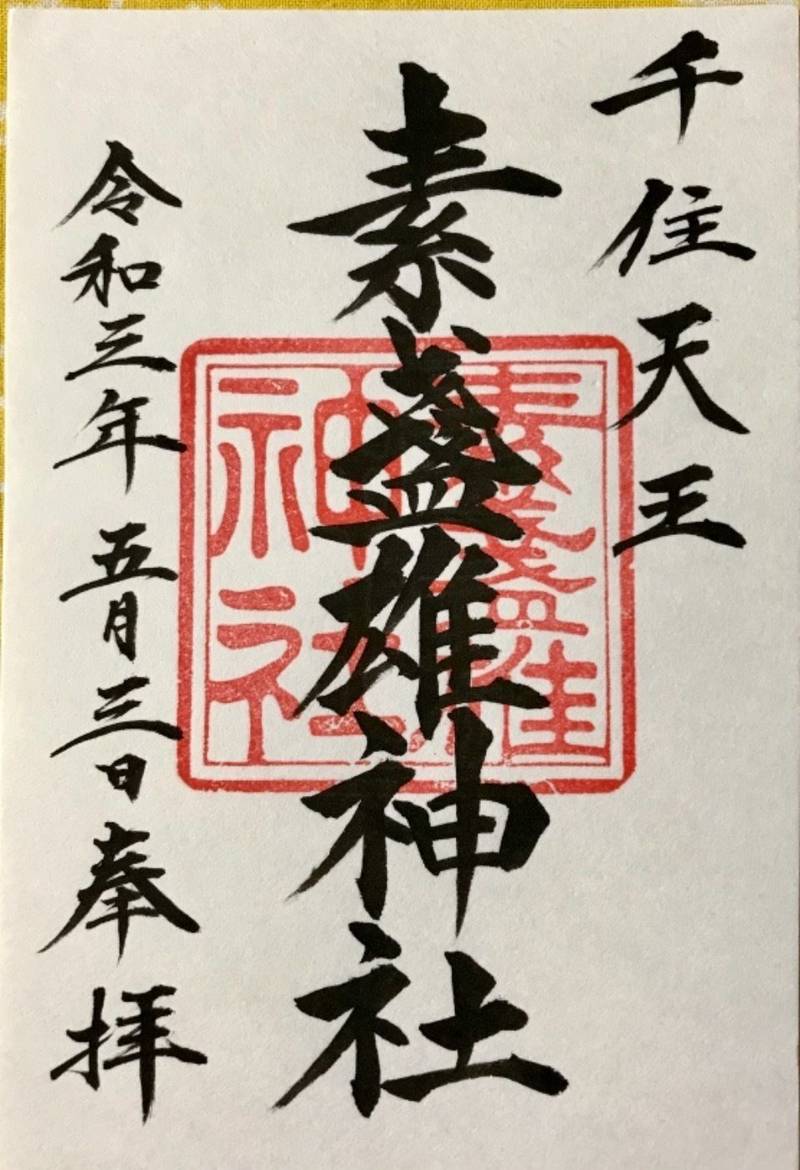 千住天王
素盞雄神社
令和三年五月三日奉拝
素盞雄
神社